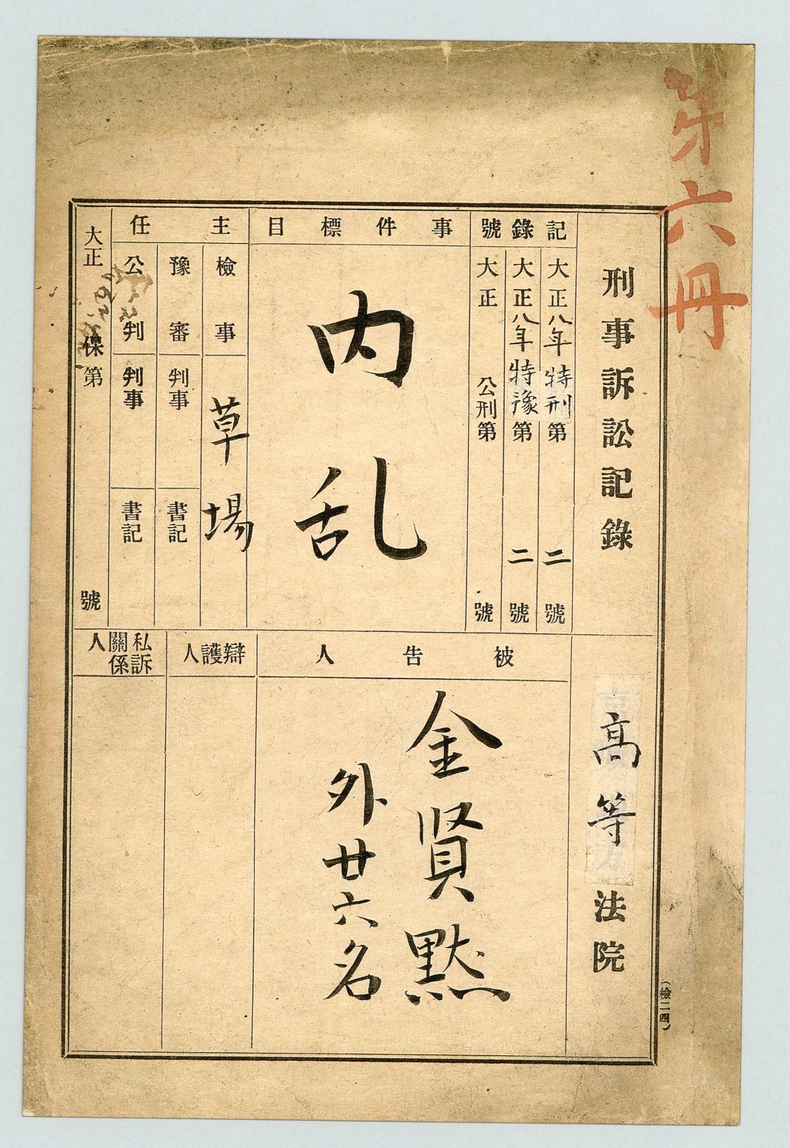 第六冊
刑事訴訟記錄
高等法院
記錄號
大正八年特刑第二號
大正八年特豫第二號
大正 公刑第 號
事件標目
内乱
主任
檢事 草場
豫審 判事 書記
公判 判事 書記
大正 保第 號
被告人
金賢黙
外廿六名
辯護人
私訴關係人
(檢二四)